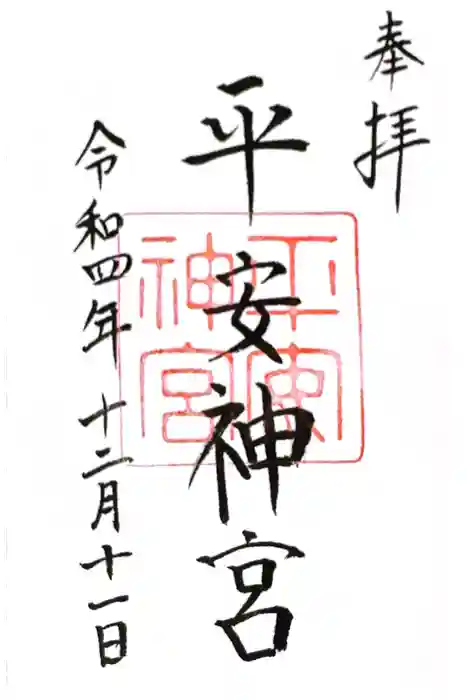 奉拝
平安神宮
平安
神宮
令和四年 十二月十一日